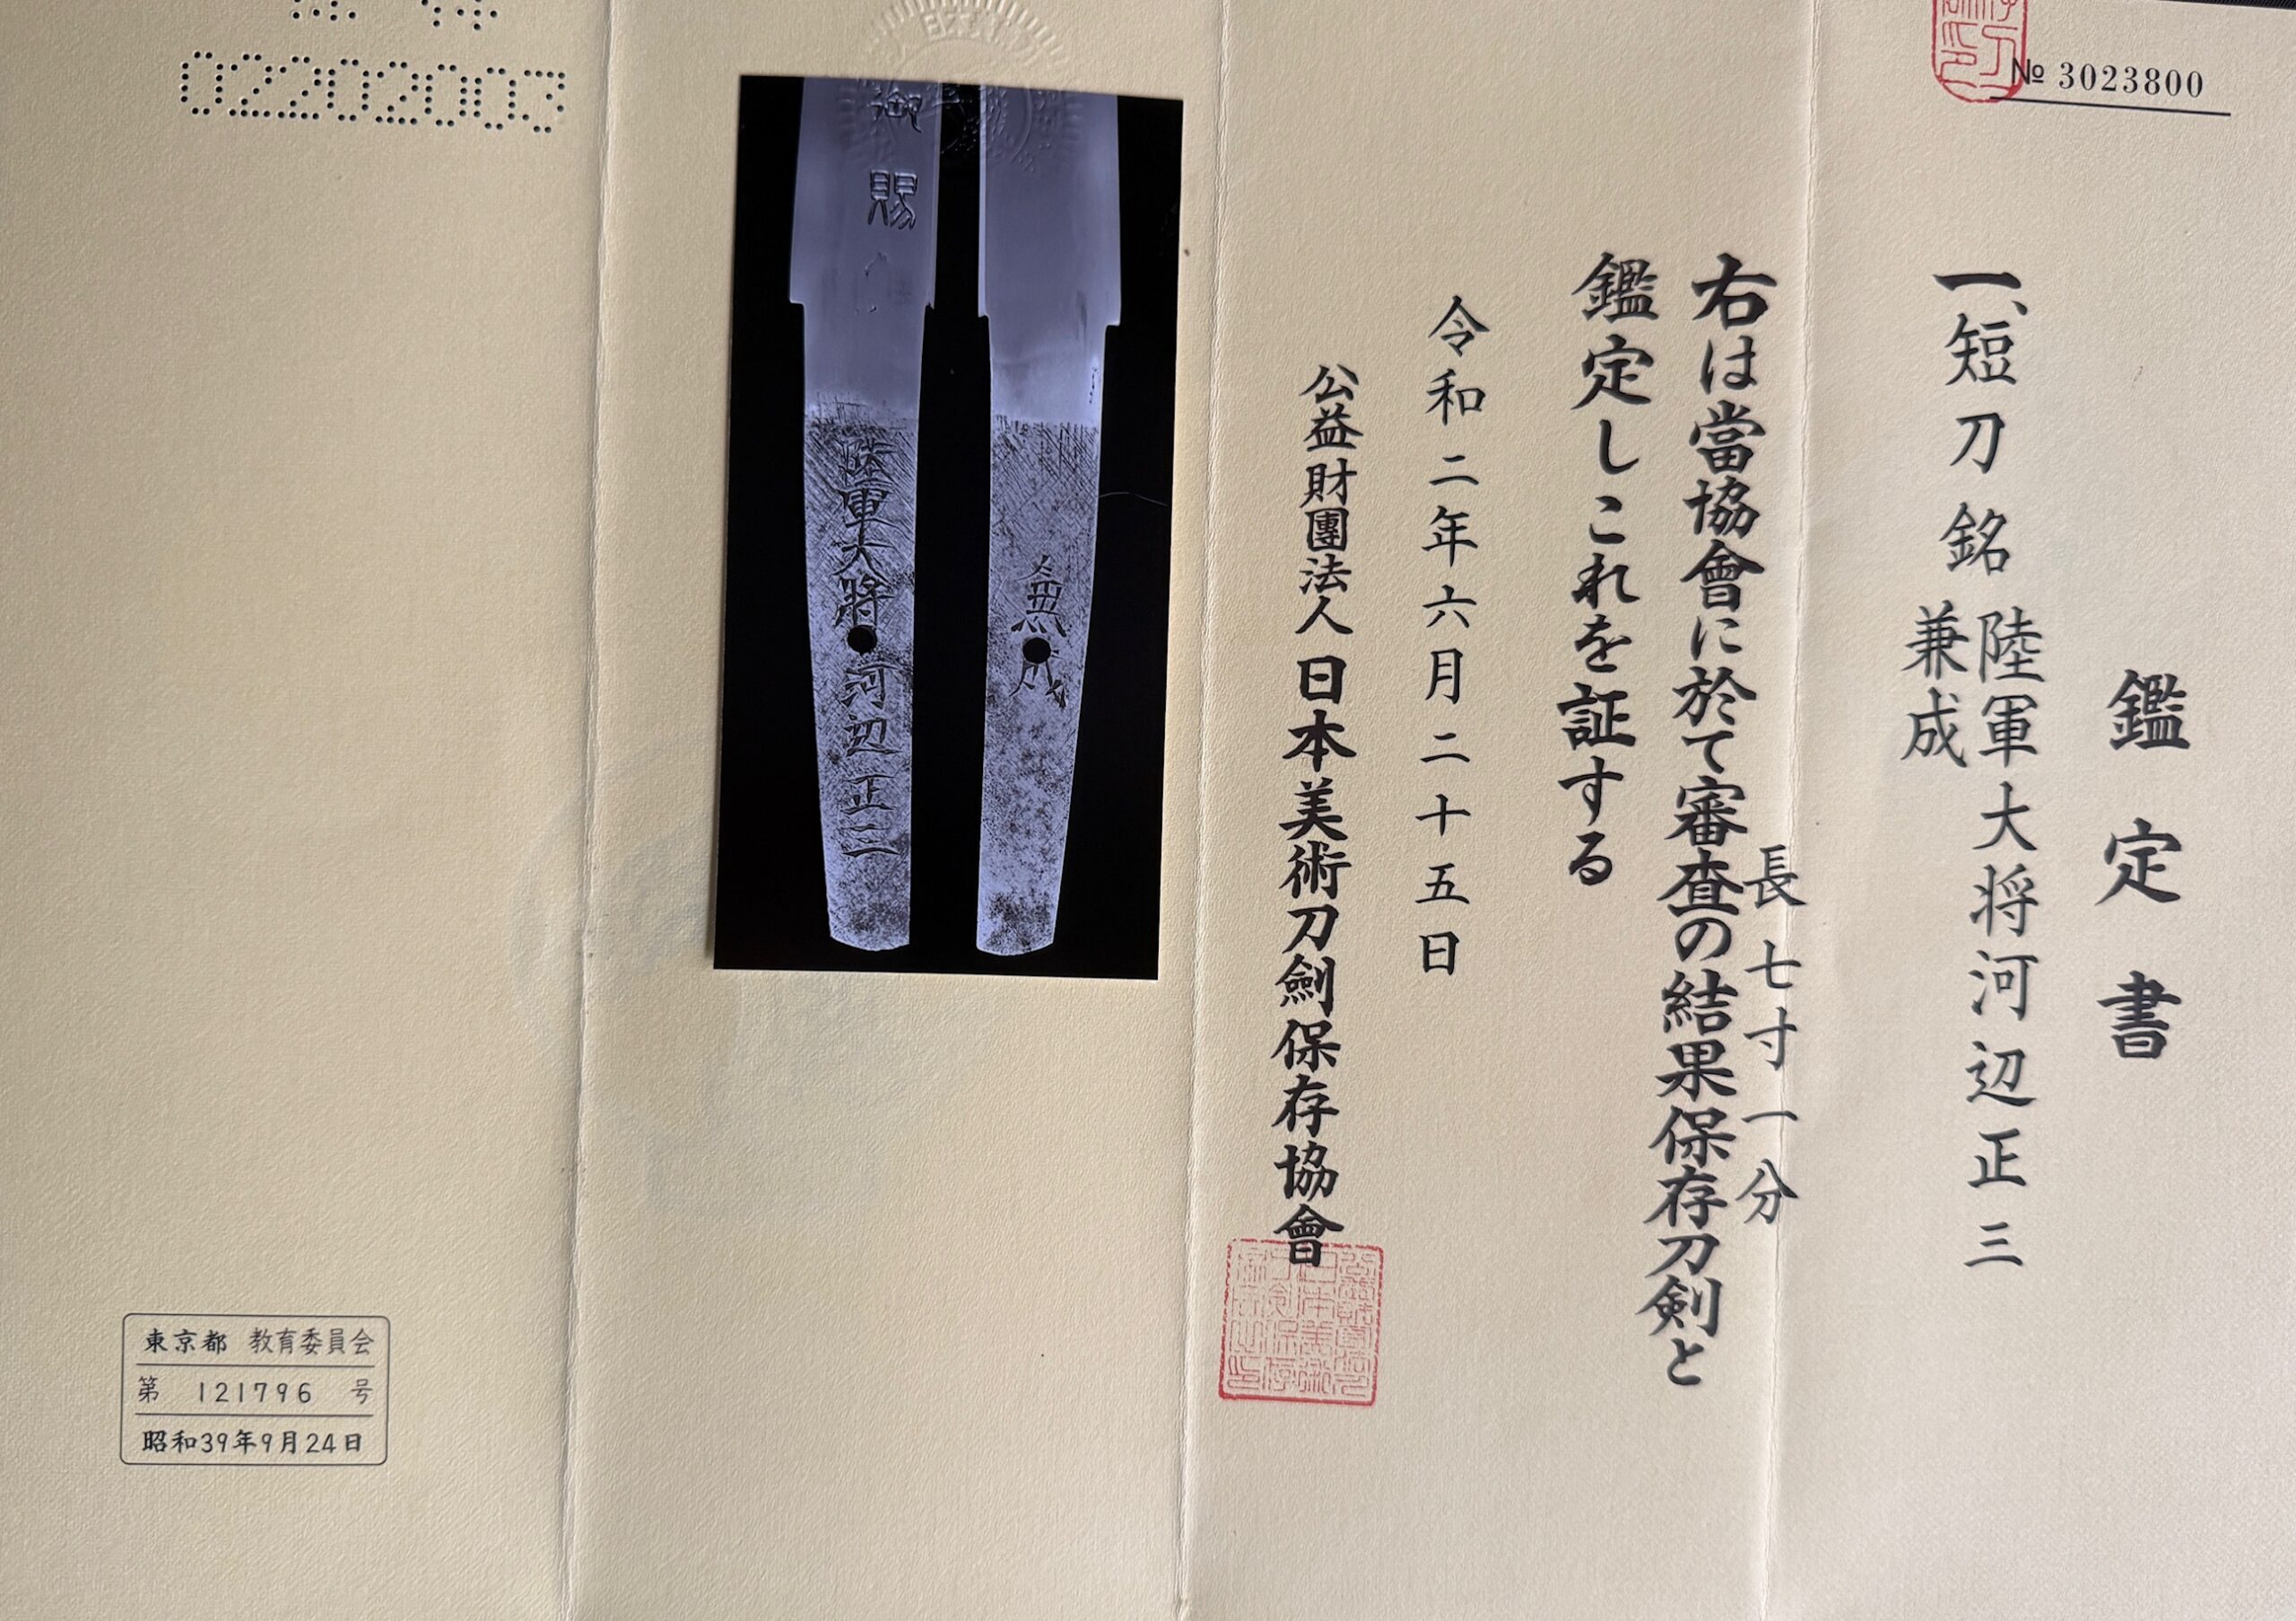 № 3023800
鑑定書
一、短刀 銘 陸軍大将河辺正三
兼成
長七寸一分
右は當協會に於て審査の結果保存刀剣と
鑑定しこれを証する
令和二年六月二十五日
公益財團法人日本美術刀劍保存協會
御賜
陸軍大將河辺正三
兼成
02202003
東京都 教育委員会
第 121796 号
昭和39年9月24日